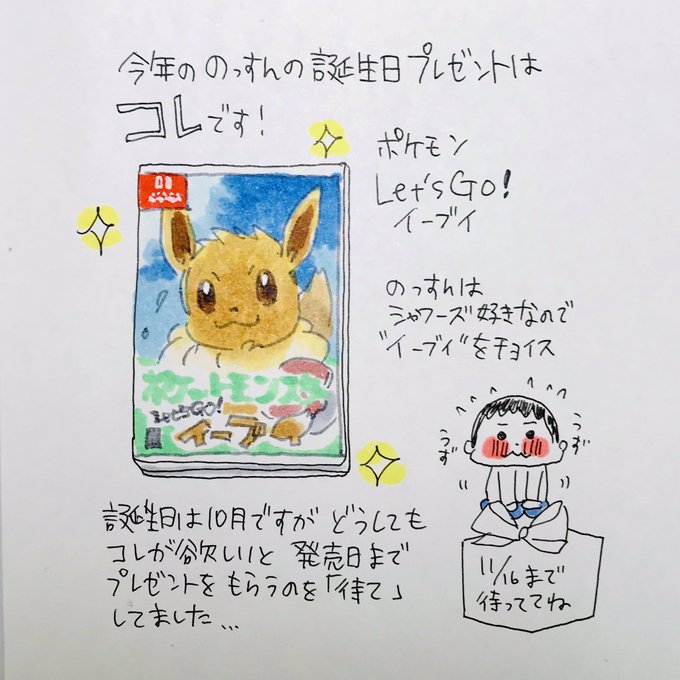 今年の のっすんの誕生日プレゼントは
コレです!
ポケモン
Let's GO!
イーブイ
ポケットモンスター
Let's GO!
イーブイ
のっすんは
シャワーズ好きなので
"イーブイ"をチョイス
うず
うず
誕生日は10月ですが どうしても
コレが欲しいと 発売日まで
プレゼントを もらうのを「待て」
してました...
11/16まで
待っててね